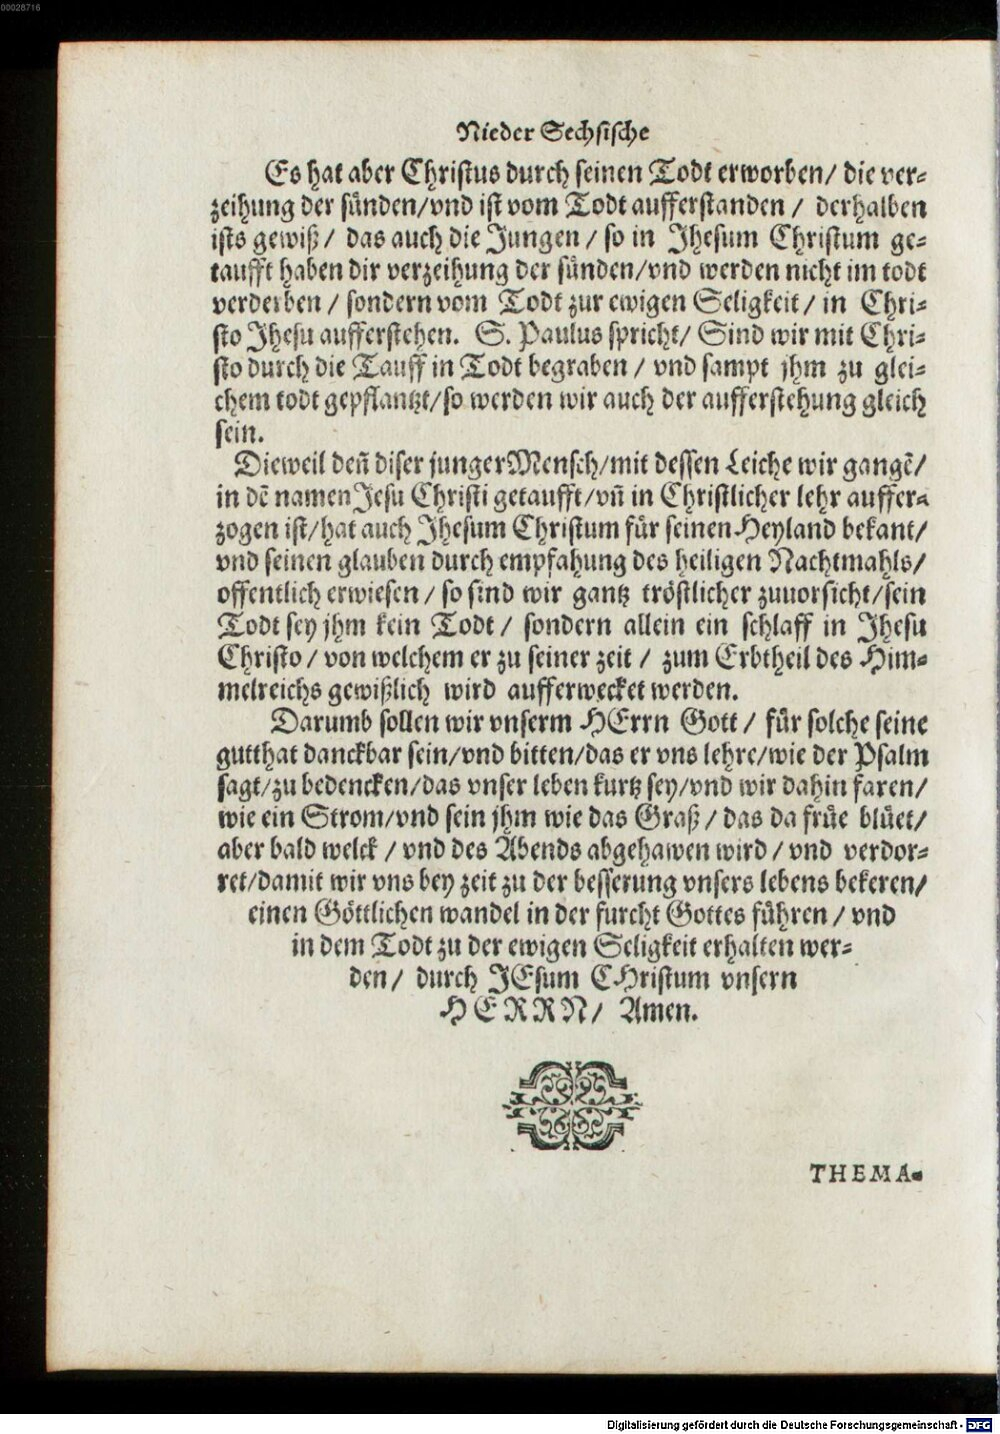 00028716
Nieder Sechsische
Es hat aber Christus durch seinen Todt erworben/ die ver-
zeihung der sünden/vnd ist vom Todt aufferstanden / derhalben
ists gewiß / das auch die Jungen / so in Jhesum Christum ge-
taufft haben dir verzeihung der sünden/vnd werden nicht im todt
verderben / sondern vom Todt zur ewigen Seligkeit / in Chri-
sto Jhesu aufferstehen. S. Paulus spricht/ Sind wir mit Chri-
sto durch die Tauff in Todt begraben / vnd sampt jhm zu glei-
chem todt gepflantzt/so werden wir auch der aufferstehung gleich
sein.
Dieweil deñ diser junger Mensch/mit dessen Leiche wir gangẽ/
in dẽ namen Jesu Christi getaufft/vñ in Christlicher lehr auffer-
zogen ist/hat auch Jhesum Christum für seinen Heyland bekant/
vnd seinen glauben durch empfahung des heiligen Nachtmahls/
offentlich erwiesen / so sind wir gantz tröstlicher zuuorsicht/sein
Todt sey jhm kein Todt / sondern allein ein schlaff in Jhesu
Christo / von welchem er zu seiner zeit / zum Erbtheil des Him-
melreichs gewißlich wird aufferwecket werden.
Darumb sollen wir vnserm HErrn Gott / für solche seine
gutthat danckbar sein/vnd bitten/das er vns lehre/wie der Psalm
sagt/zu bedencken/das vnser leben kurtz sey/vnd wir dahin faren/
wie ein Strom/vnd sein jhm wie das Graß / das da früe blüet/
aber bald welck / vnd des Abends abgehawen wird / vnd verdor-
ret/damit wir vns bey zeit zu der besserung vnsers lebens bekeren/
einen Göttlichen wandel in der furcht Gottes führen / vnd
in dem Todt zu der ewigen Seligkeit erhalten wer-
den / durch JEsum CHristum vnsern
HERRN / Amen.
THEMA-
Digitalisierung gefördert durch die Deutsche Forschungsgemeinschaft - DFG